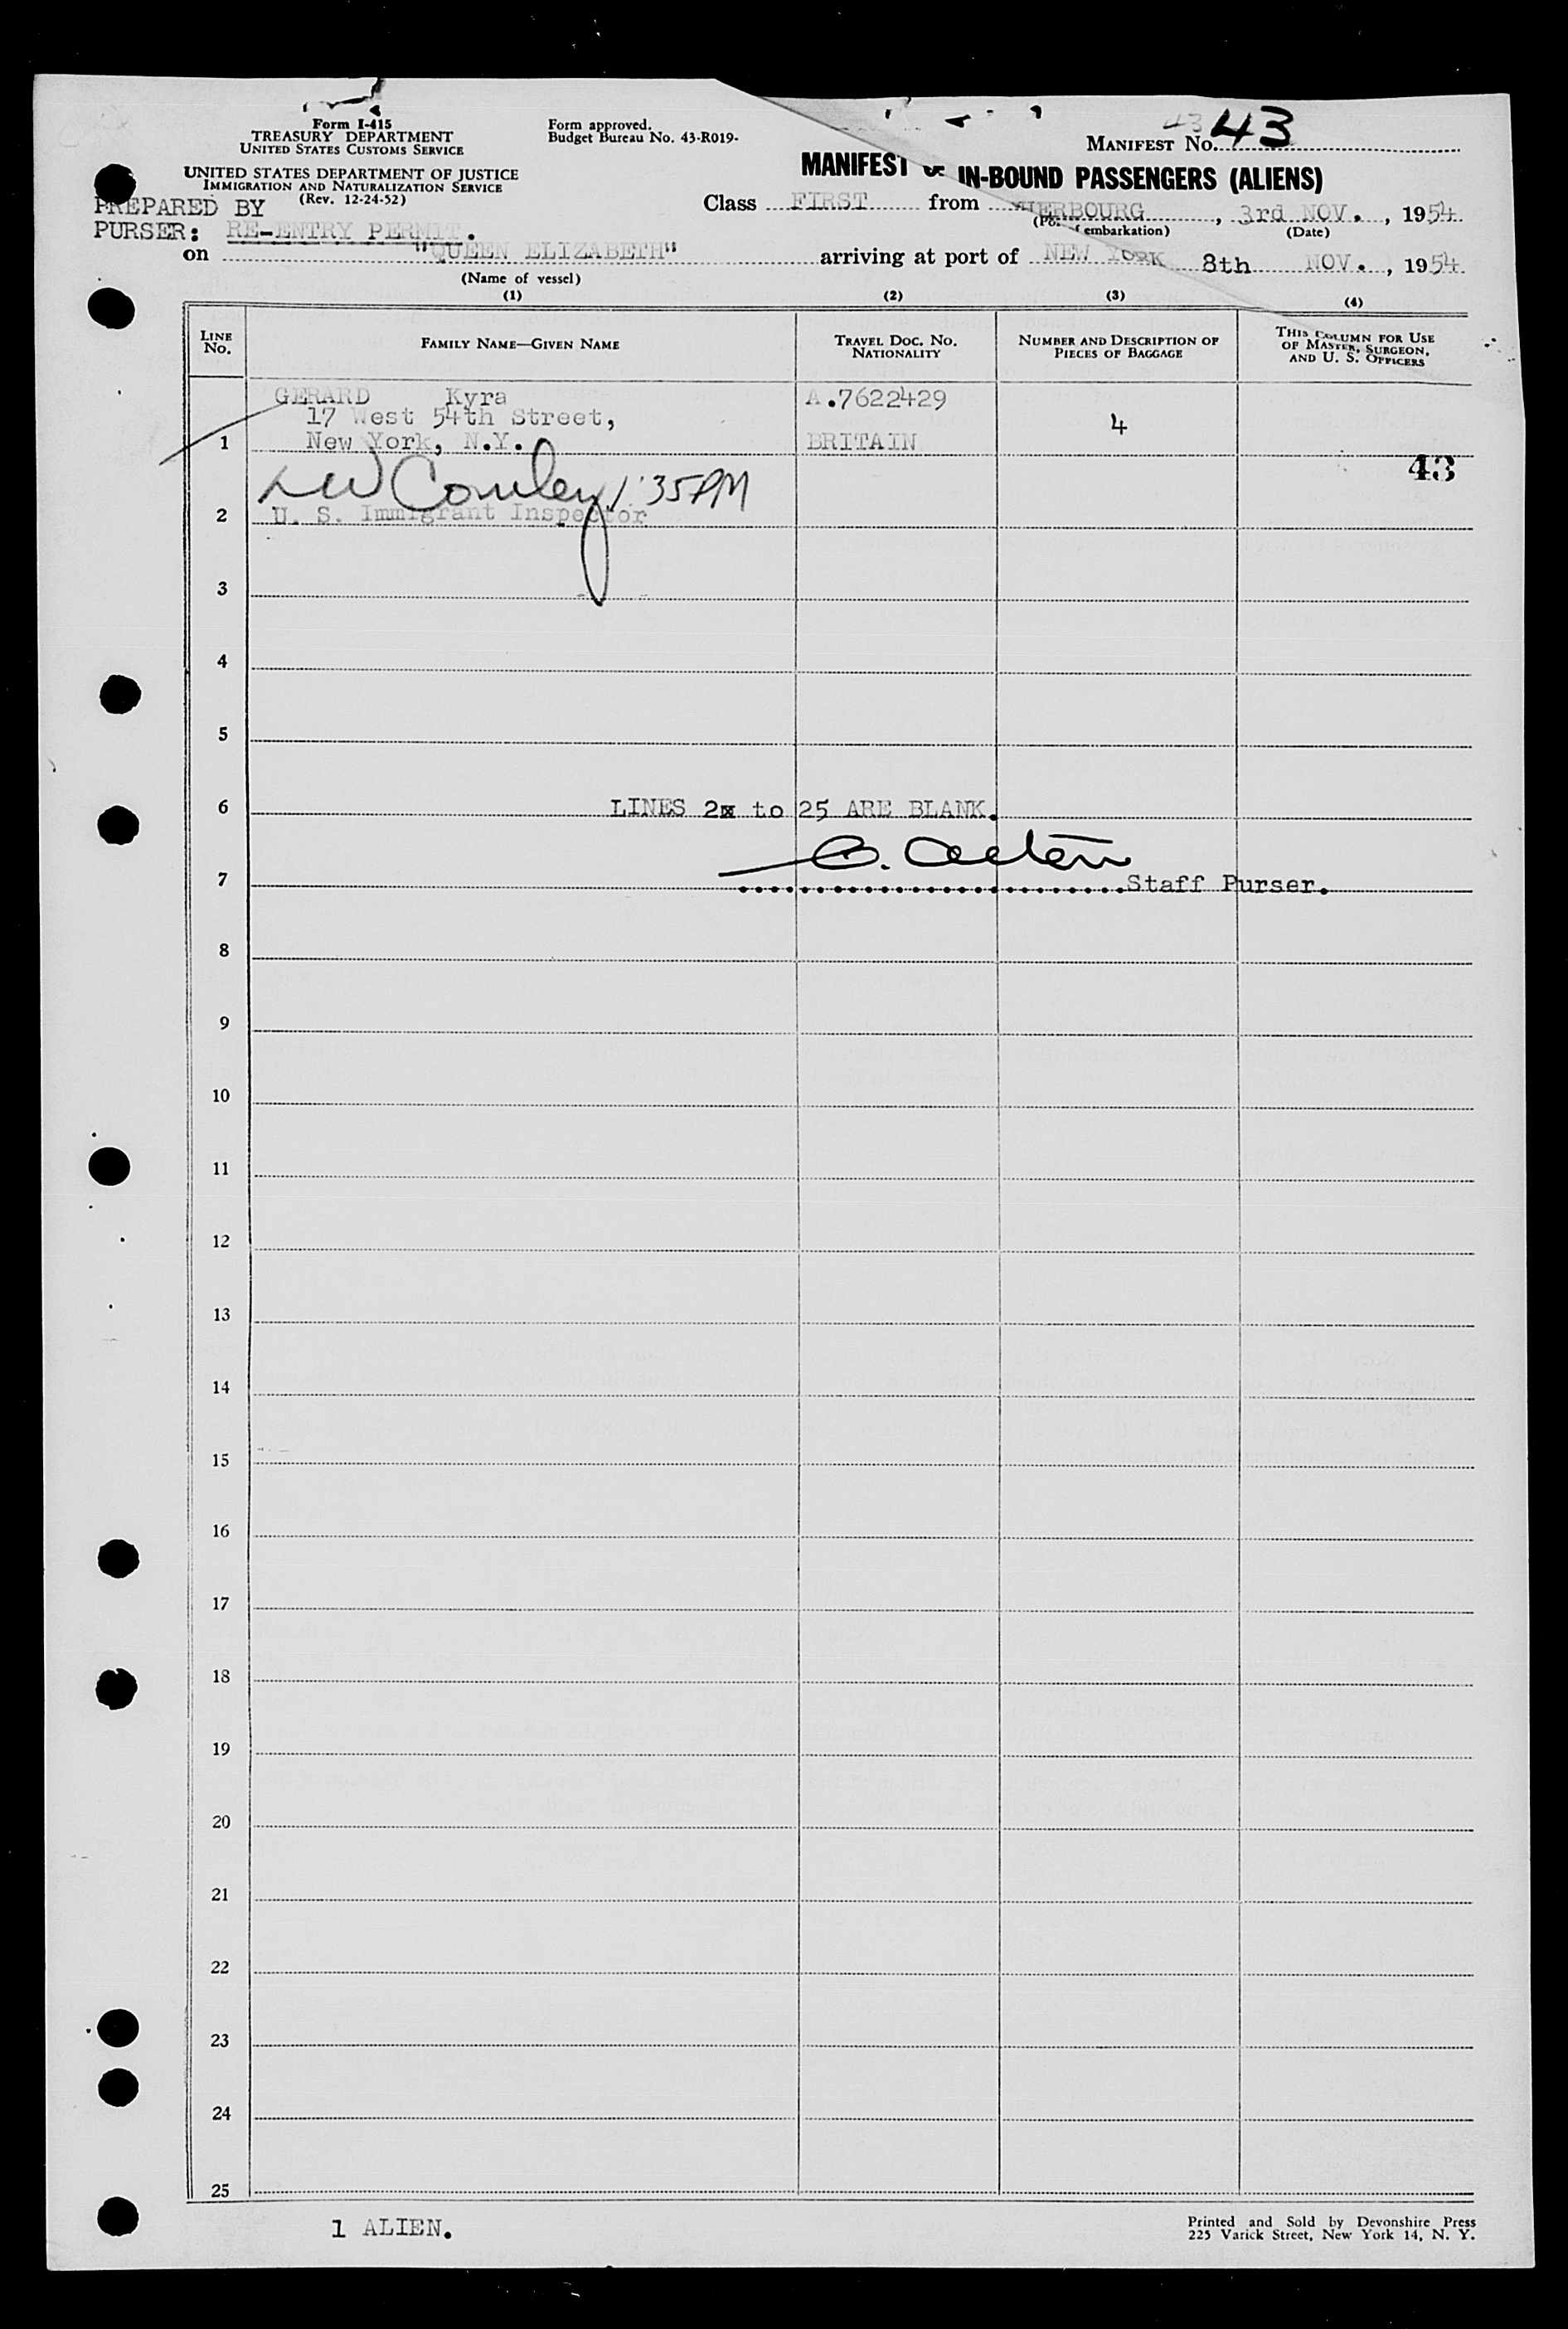 Form I-415
TREASURY DEPARTMENT
UNITED STATES CUSTOMS SERVICE
UNITED STATES DEPARTMENT OF JUSTICE
IMMIGRATION AND NATURALIZATION SERVICE
(Rev. 12-24-52)
Form approved.
Budget Bureau No. 43-R019-
43 43
MANIFEST No.
MANIFEST IN-BOUND PASSENGERS (ALIENS)
PREPARED BY
PURSER: RE-ENTRY PERMIT.
Class FIRST from CHERBOURG, 3rd NOV., 1954
embarkation) (Date)
on "QUEEN ELIZABETH" arriving at port of NEW YORK 8th NOV., 1954
(Name of vessel)
(1) (2) (3) (4)
LINE No. FAMILY NAME—GIVEN NAME TRAVEL DOC. NO. NATIONALITY NUMBER AND DESCRIPTION OF PIECES OF BAGGAGE THIS COLUMN FOR USE OF MASTER, SURGEON, AND U. S. OFFICERS
GERARD Kyra A.7622429
17 West 54th Street, 4
1 New York, N.Y. BRITAIN
43
1:35PM
2 U. S. Immigrant Inspector
3
4
5
6 LINES 2 to 25 ARE BLANK.
7 Staff Purser.
8
9
10
11
12
13
14
15
16
17
18
19
20
21
22
23
24
25
1 ALIEN.
Printed and Sold by Devonshire Press
225 Varick Street, New York 14, N. Y.